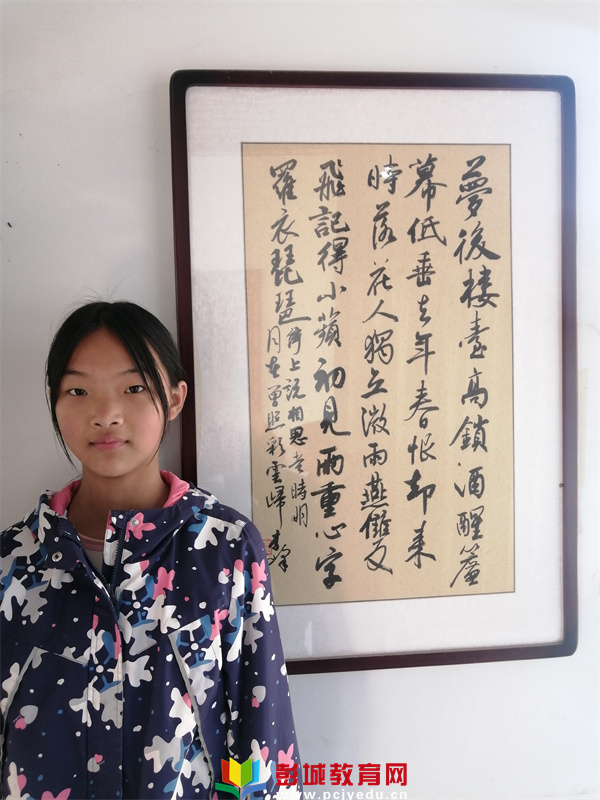 夢後樓臺高鎖酒醒簾
幕低垂去年春恨却来
時落花人獨立微雨燕雙
飛記得小蘋初見兩重心字
羅衣琵琶弦上説相思當時明
月在曾照彩雲歸
彭城教育网
www.pcjyedu.cn